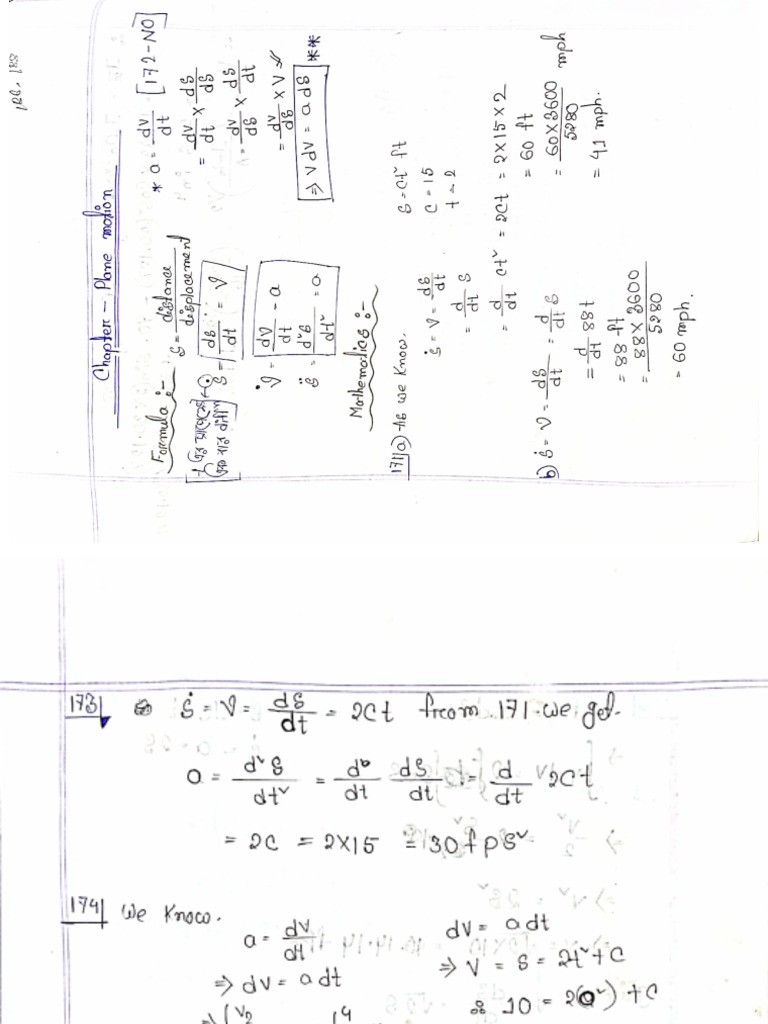 188 - 189
Chapter - Plane motion
Formula :-
S = distance
displacement
Ṡ = dS/dt = V
V̇ = dV/dt = a
S̈ = d²S/dt² = a
* a = dv/dt [172-NO]
= dv/dt × dS/dS
= dv/dS × dS/dt
= dv/dS × V
⇒ V dV = a dS **
Mathematics :-
171 a) As we know.
Ṡ = V = dS/dt
= d/dt S
= d/dt ct² = 2ct = 2×15×2
= 60 ft
= 60×3600/5280 mph
= 41 mph.
S = ct² ft
C = 15
t = 2
b) Ṡ = V = dS/dt = d/dt S
= d/dt 88t
= 88 ft
= 88 × 3600/5280
= 60 mph.
173 Ṡ = V = dS/dt = 2Ct from 171 we get.
a = d²S/dt² = d/dt dS/dt = d/dt 2Ct
= 2C = 2×15 = 30 fps²
174 We know.
a = dV/dt
⇒ dV = a dt
dV = a dt
⇒ V = S = 2t² + C
∴ 10 = 2(0²) + C